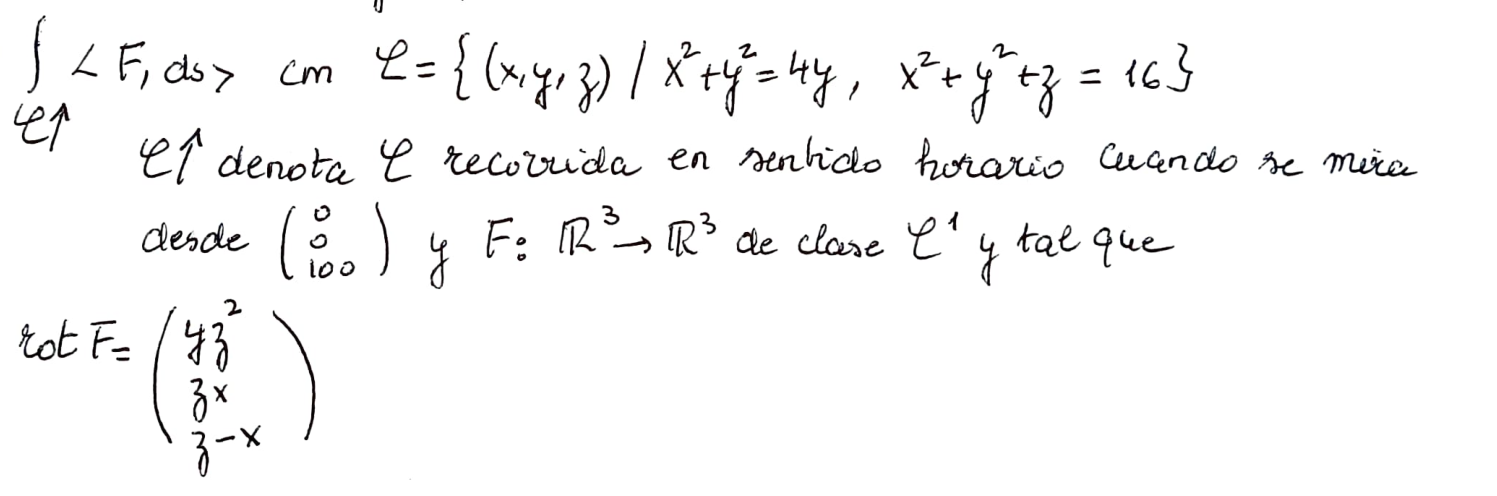 ∫_{𝒞↑} < F, ds > con 𝒞 = { (x, y, z) / x² + y² = 4y, x² + y² + z = 16 }
𝒞↑ denota 𝒞 recorrida en sentido horario cuando se mira
desde (0 0 100) y F: ℝ³ → ℝ³ de clase 𝒞¹ y tal que
rot F = (yz² zx z-x)